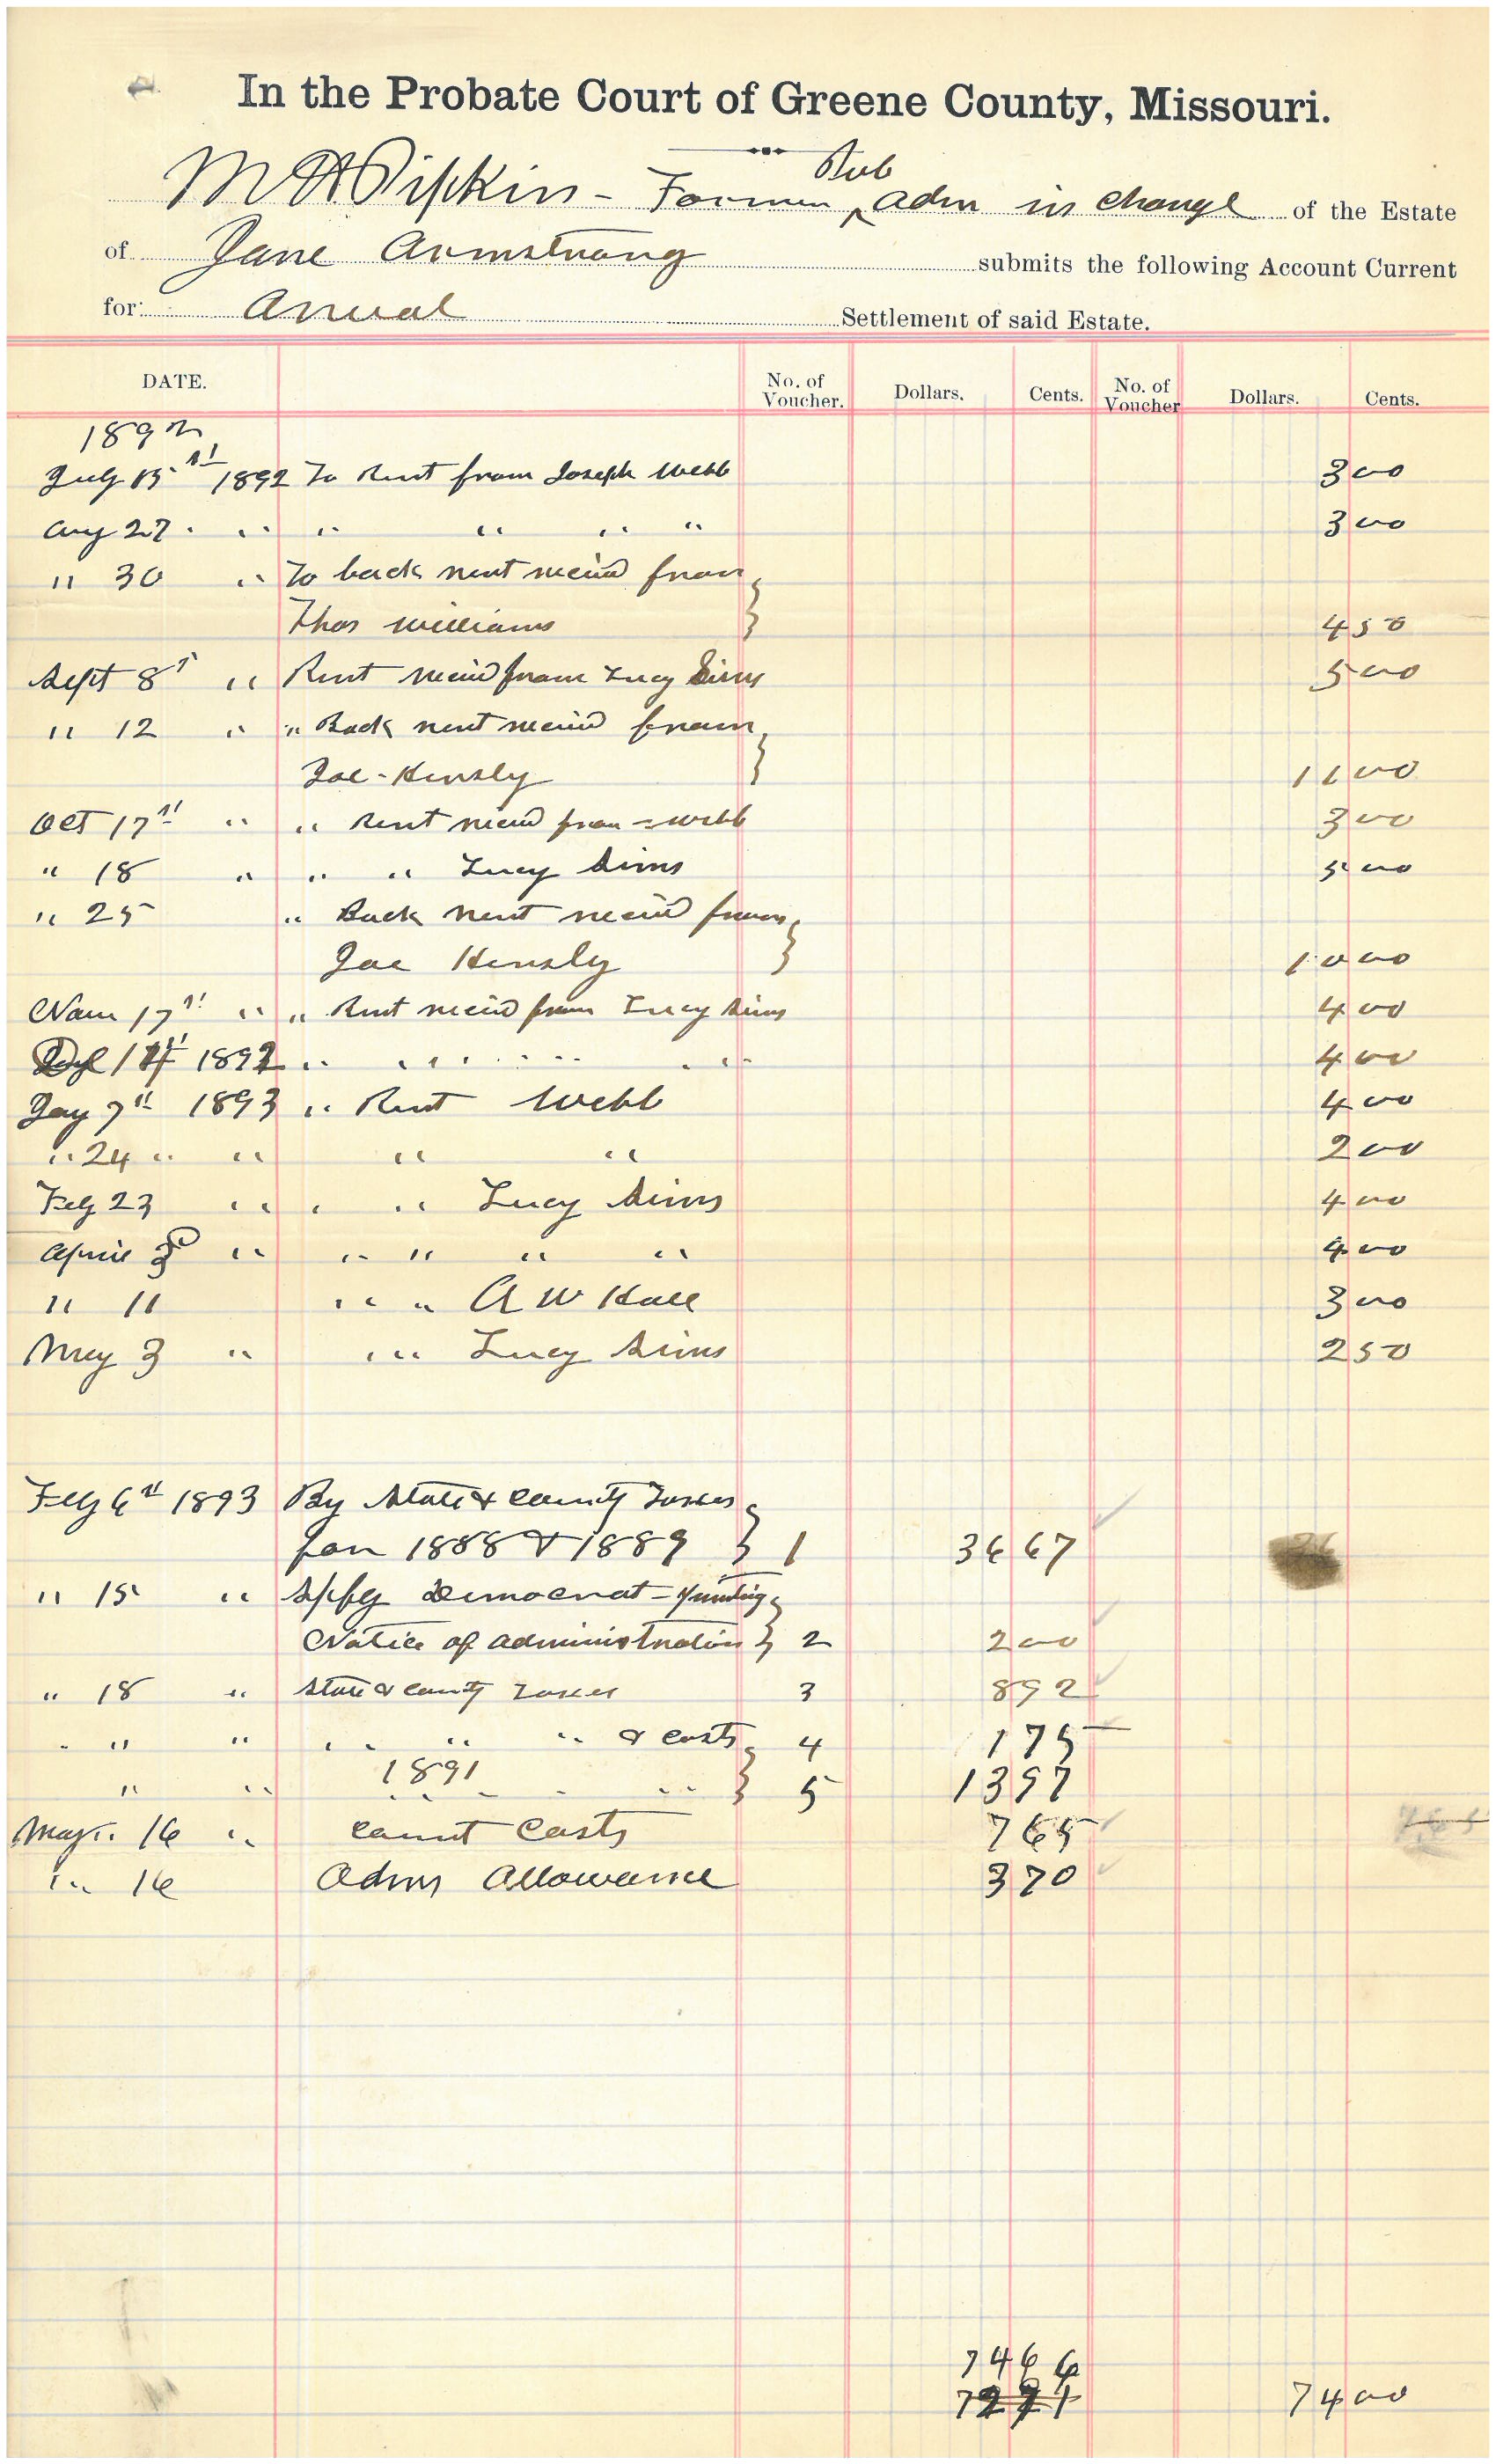 In the Probate Court of Greene County, Missouri.
Pub
M H Pipkin - Former ^ Adm in charge of the Estate
of Jane Armstrong submits the following Account Current
for: Anual Settlement of said Estate.
DATE. No. of Voucher. Dollars. Cents. No. of Voucher Dollars. Cents.
1892
July 15th 1892 To Rent from Joseph Webb 3 00
Aug 27 " " " " " " 3 00
" 30 " To back rent recivd from
Thos Williams 4 50
Sept 8th " Rent recivd from Lucy Sims 5 00
" 12 " " Back rent recivd from
Joe - Hensly 11 00
Oct 17th " " Rent recivd from = Webb 3 00
" 18 " " " Lucy Sims 5 00
" 25 " Back rent recivd from
Joe Hensly 10 00
Nov 17th " " Rent recivd from Lucy Sims 4 00
14th 1892 " " " " " " 4 00
Jay 7th 1893 " Rent Webb 4 00
" 24 " " " " 2 00
Feby 23 " " " Lucy Sims 4 00
April 3d " " " " " 4 00
" 11 " " A W Hall 3 00
May 3 " " " Lucy Sims 2 50
Feby 6th 1893 By State & County Taxes
for 1888 & 1889 1 36 67
" 15 " Spfg Democrat - Printing
Notice of Administration 2 2 00
" 18 " State & County Taxes 3 8 92
" " " " " " & Costs 4 1 75
1891
" " " " " " 5 13 97
May 16 " Court Costs 7 65
" " 16 Adms Allowance 3 70
74 66
74 00